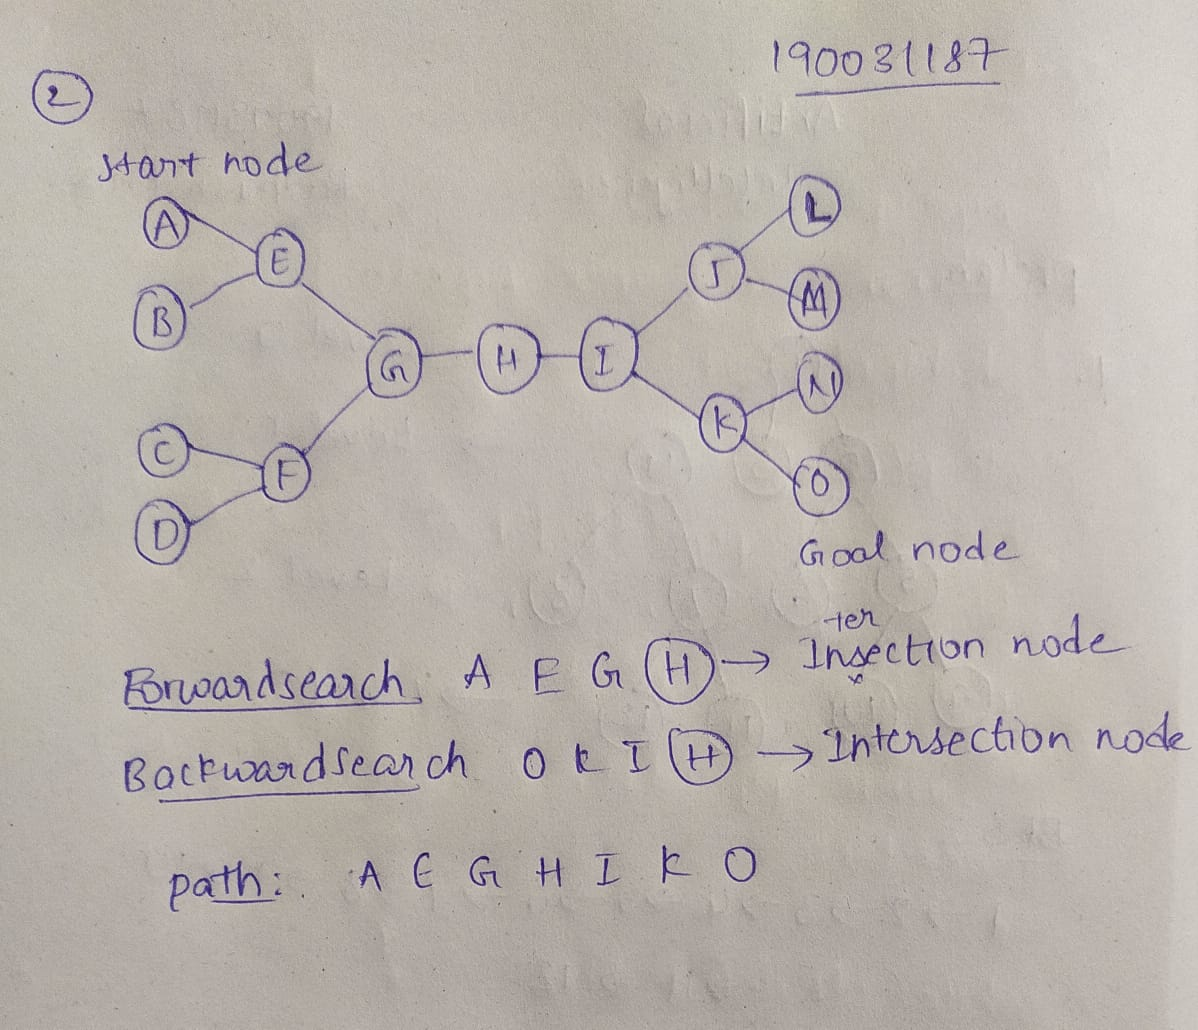 190031187
2
Start node
A
L
E
J
B
M
G H I
N
K
C
F
O
D
Goal node
Forwardsearch A E G H → Insection node
ter
Backwardsearch O K I H → Intersection node
path: A E G H I K O